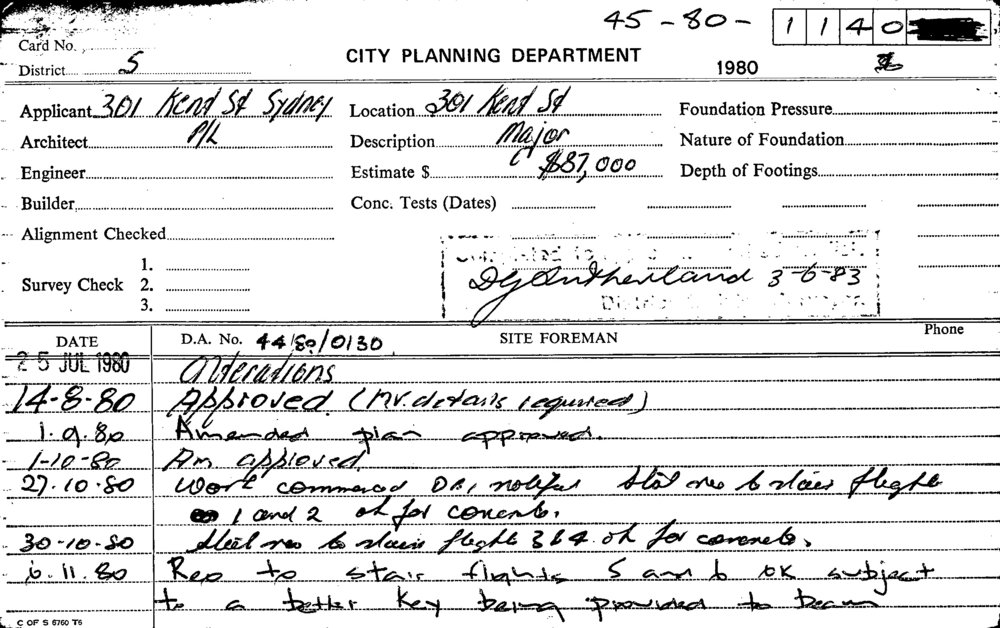 45-80- 1140
Card No.
CITY PLANNING DEPARTMENT
District 5
1980
Applicant 301 Kent St Sydney
Location 301 Kent St
Foundation Pressure
Architect P/L
Description Major
Nature of Foundation
Engineer
Estimate $ $87,000
Depth of Footings
Builder
Conc. Tests (Dates)
Alignment Checked
Survey Check
1.
2.
3.
DGSutherland 3-6-83
DATE
D.A. No. 44 80/0130
SITE FOREMAN
Phone
25 JUL 1980 Alterations
14-8-80 Approved. (MV. details required)
1.9.80 Amended plan approved.
1-10-80 Am. approved.
27.10.80 Work commenced steel reo to stair flights
1 and 2 ok for concrete.
30-10-80 Steel reo to stairs flight 3 & 4 ok for concrete.
6.11.80 Reo to stair flights 5 and 6 OK subject
to a better key being provided to beam
C OF S 6760 T6